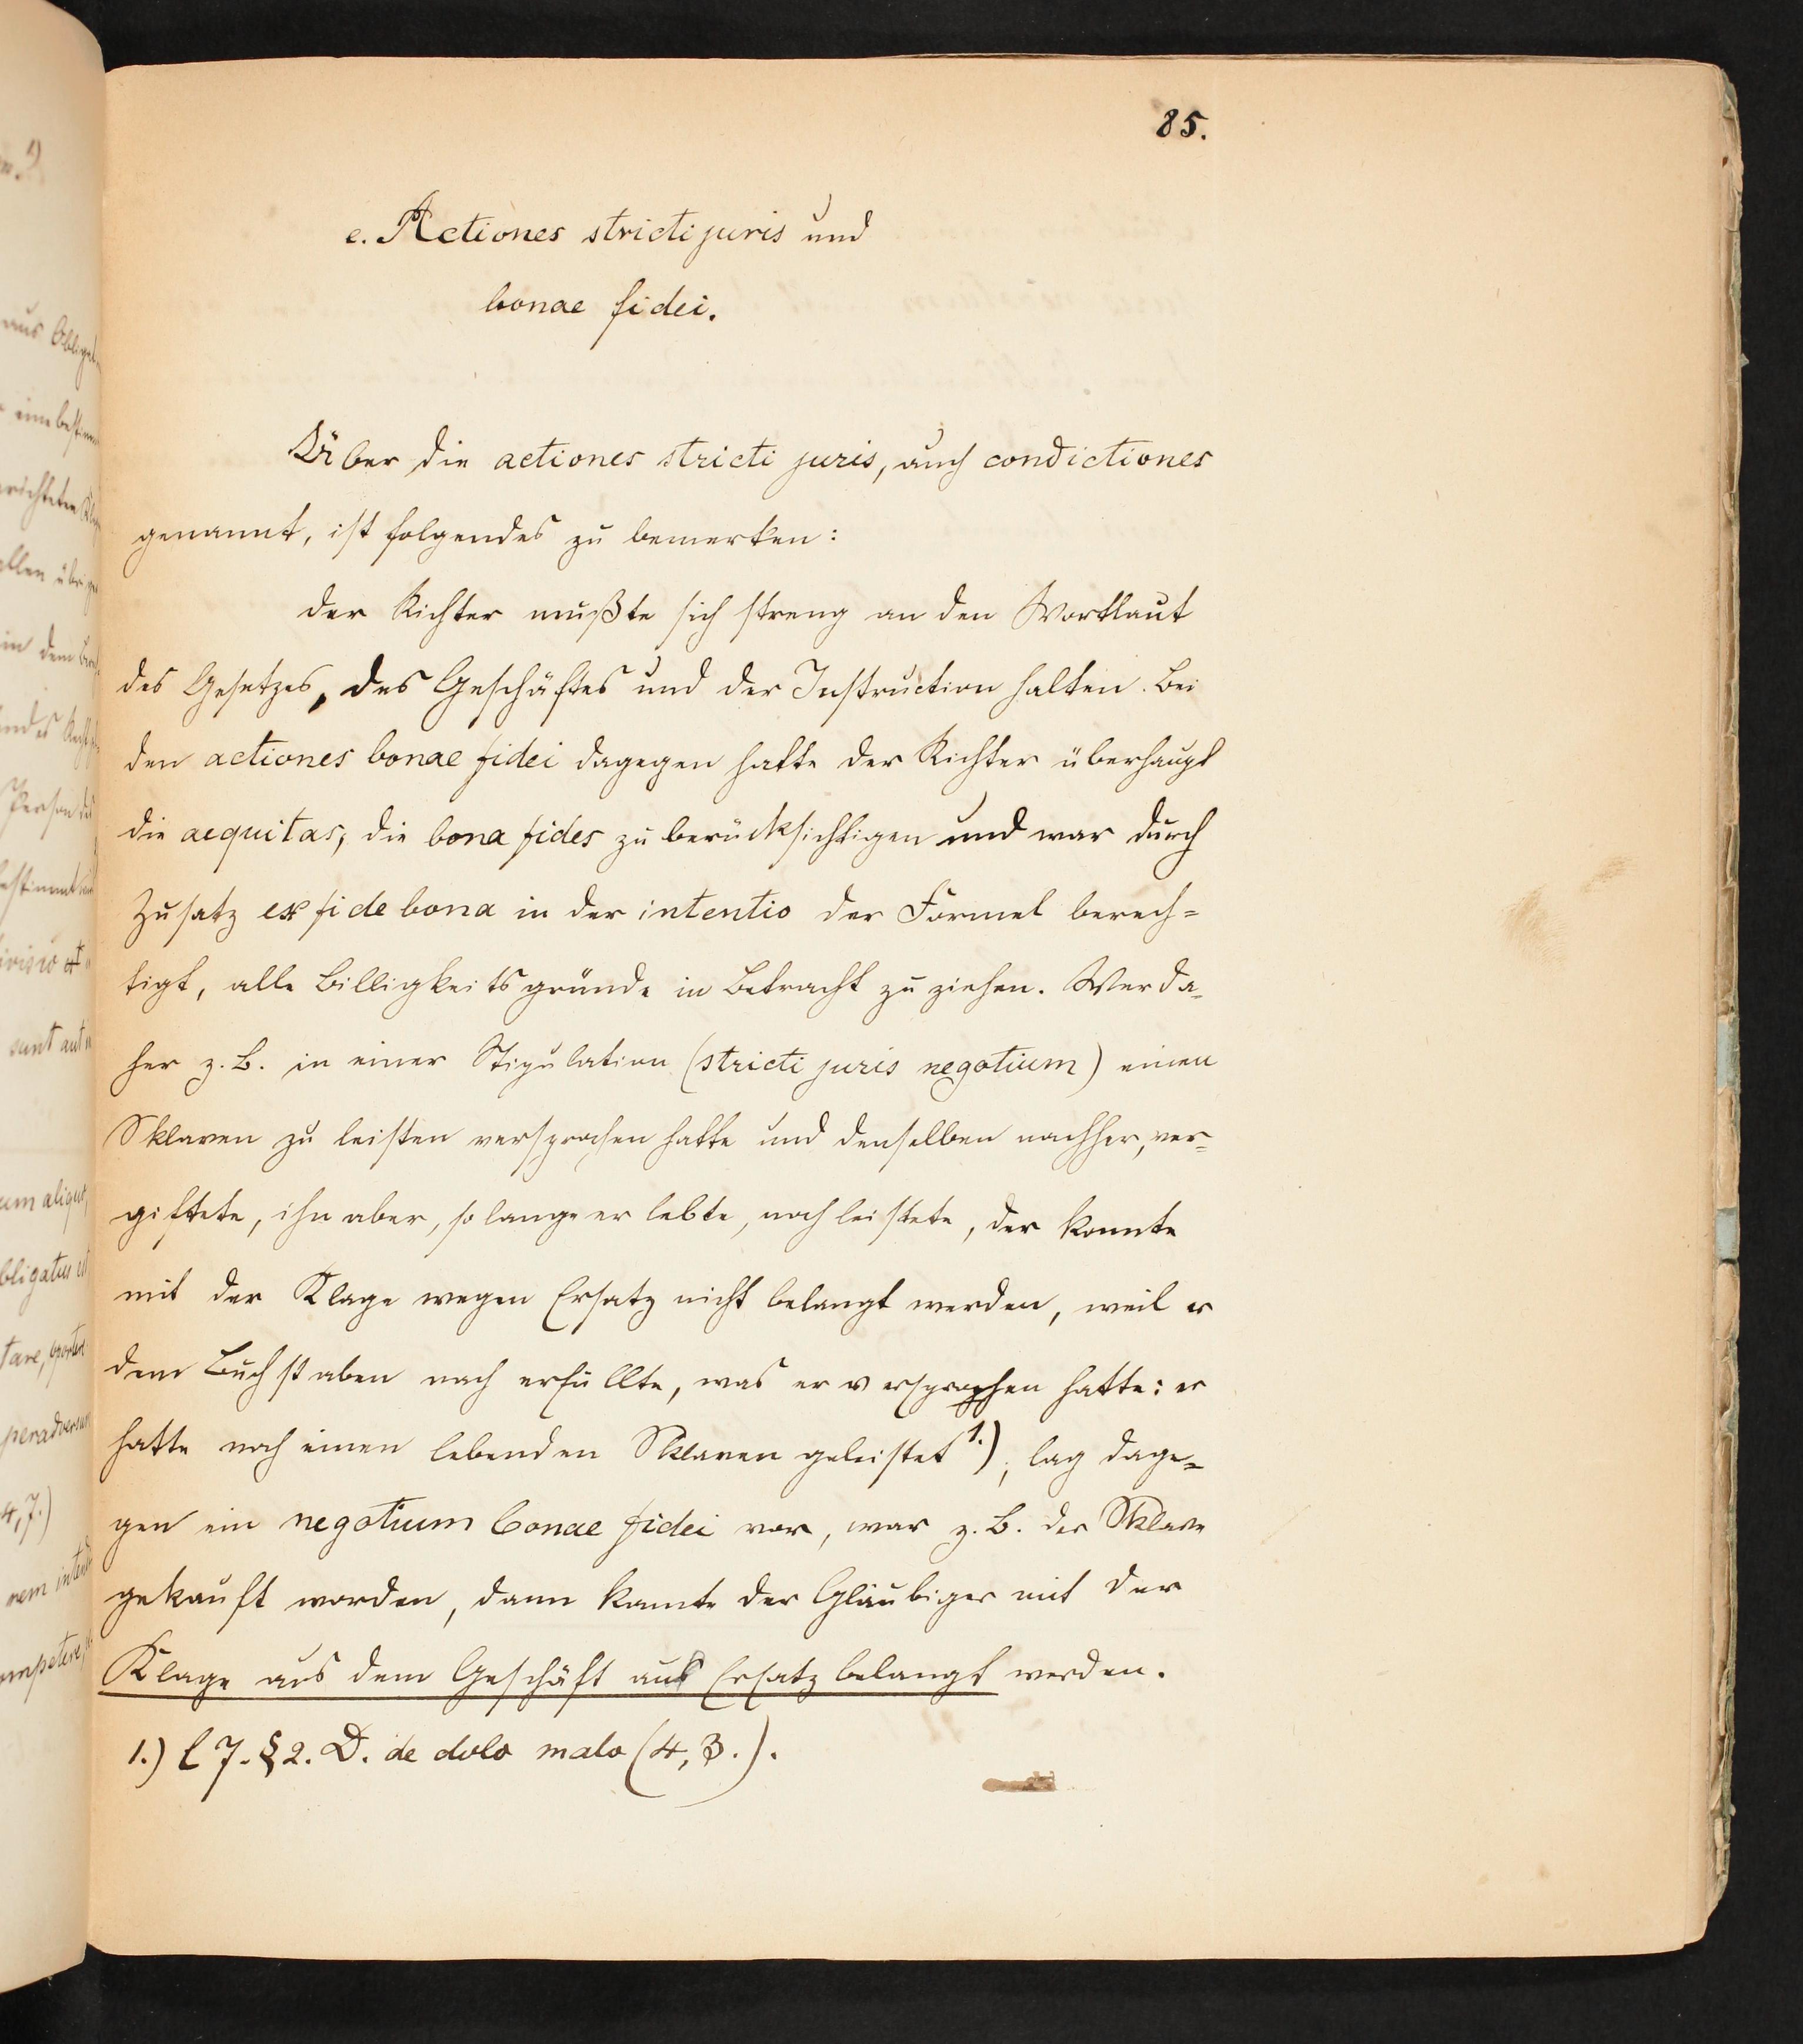 85.
e. Actiones stricti juris und
bonae fidei.
Über die actiones stricti juris, auch condictiones
genannt, ist folgendes zu bemerken:
der Richter mußte sich streng an den Wortlaut
des Gesetzes, des Geschäftes und der Instruction halten. Bei
den actiones bonae fidei dagegen hatte der Richter überhaupt
die aequitas, die bona fides zu berücksichtigen und war durch
Zusatz ex fide bona in der intentio der Formel berech=
tigt, alle Billigkeitsgründe in Betracht zu ziehen. Wer da=
her z. B. in einer Stipulation (stricti juris negotium) einen
Sklaven zu leisten versprochen hatte und denselben nachher, ver=
giftete, ihn aber, so lange er lebte, noch leistete, der konnte
mit der Klage wegen Ersatz nicht belangt werden, weil er
dem Buchstaben nach erfüllte, was er versprochen hatte: er
hatte noch einen lebenden Sklaven geleistet 1.), lag dage=
gen ein negotium bonae fidei vor, war z. B. der Sklave
gekauft worden, dann konnte der Gläubiger mit der
Klage aus dem Geschäft auf Ersatz belangt werden.
1.) l 7. § 2. D. de dolo malo (4, 3.).
aus
eine
allen
in dem
Person
sunt
4,7.)